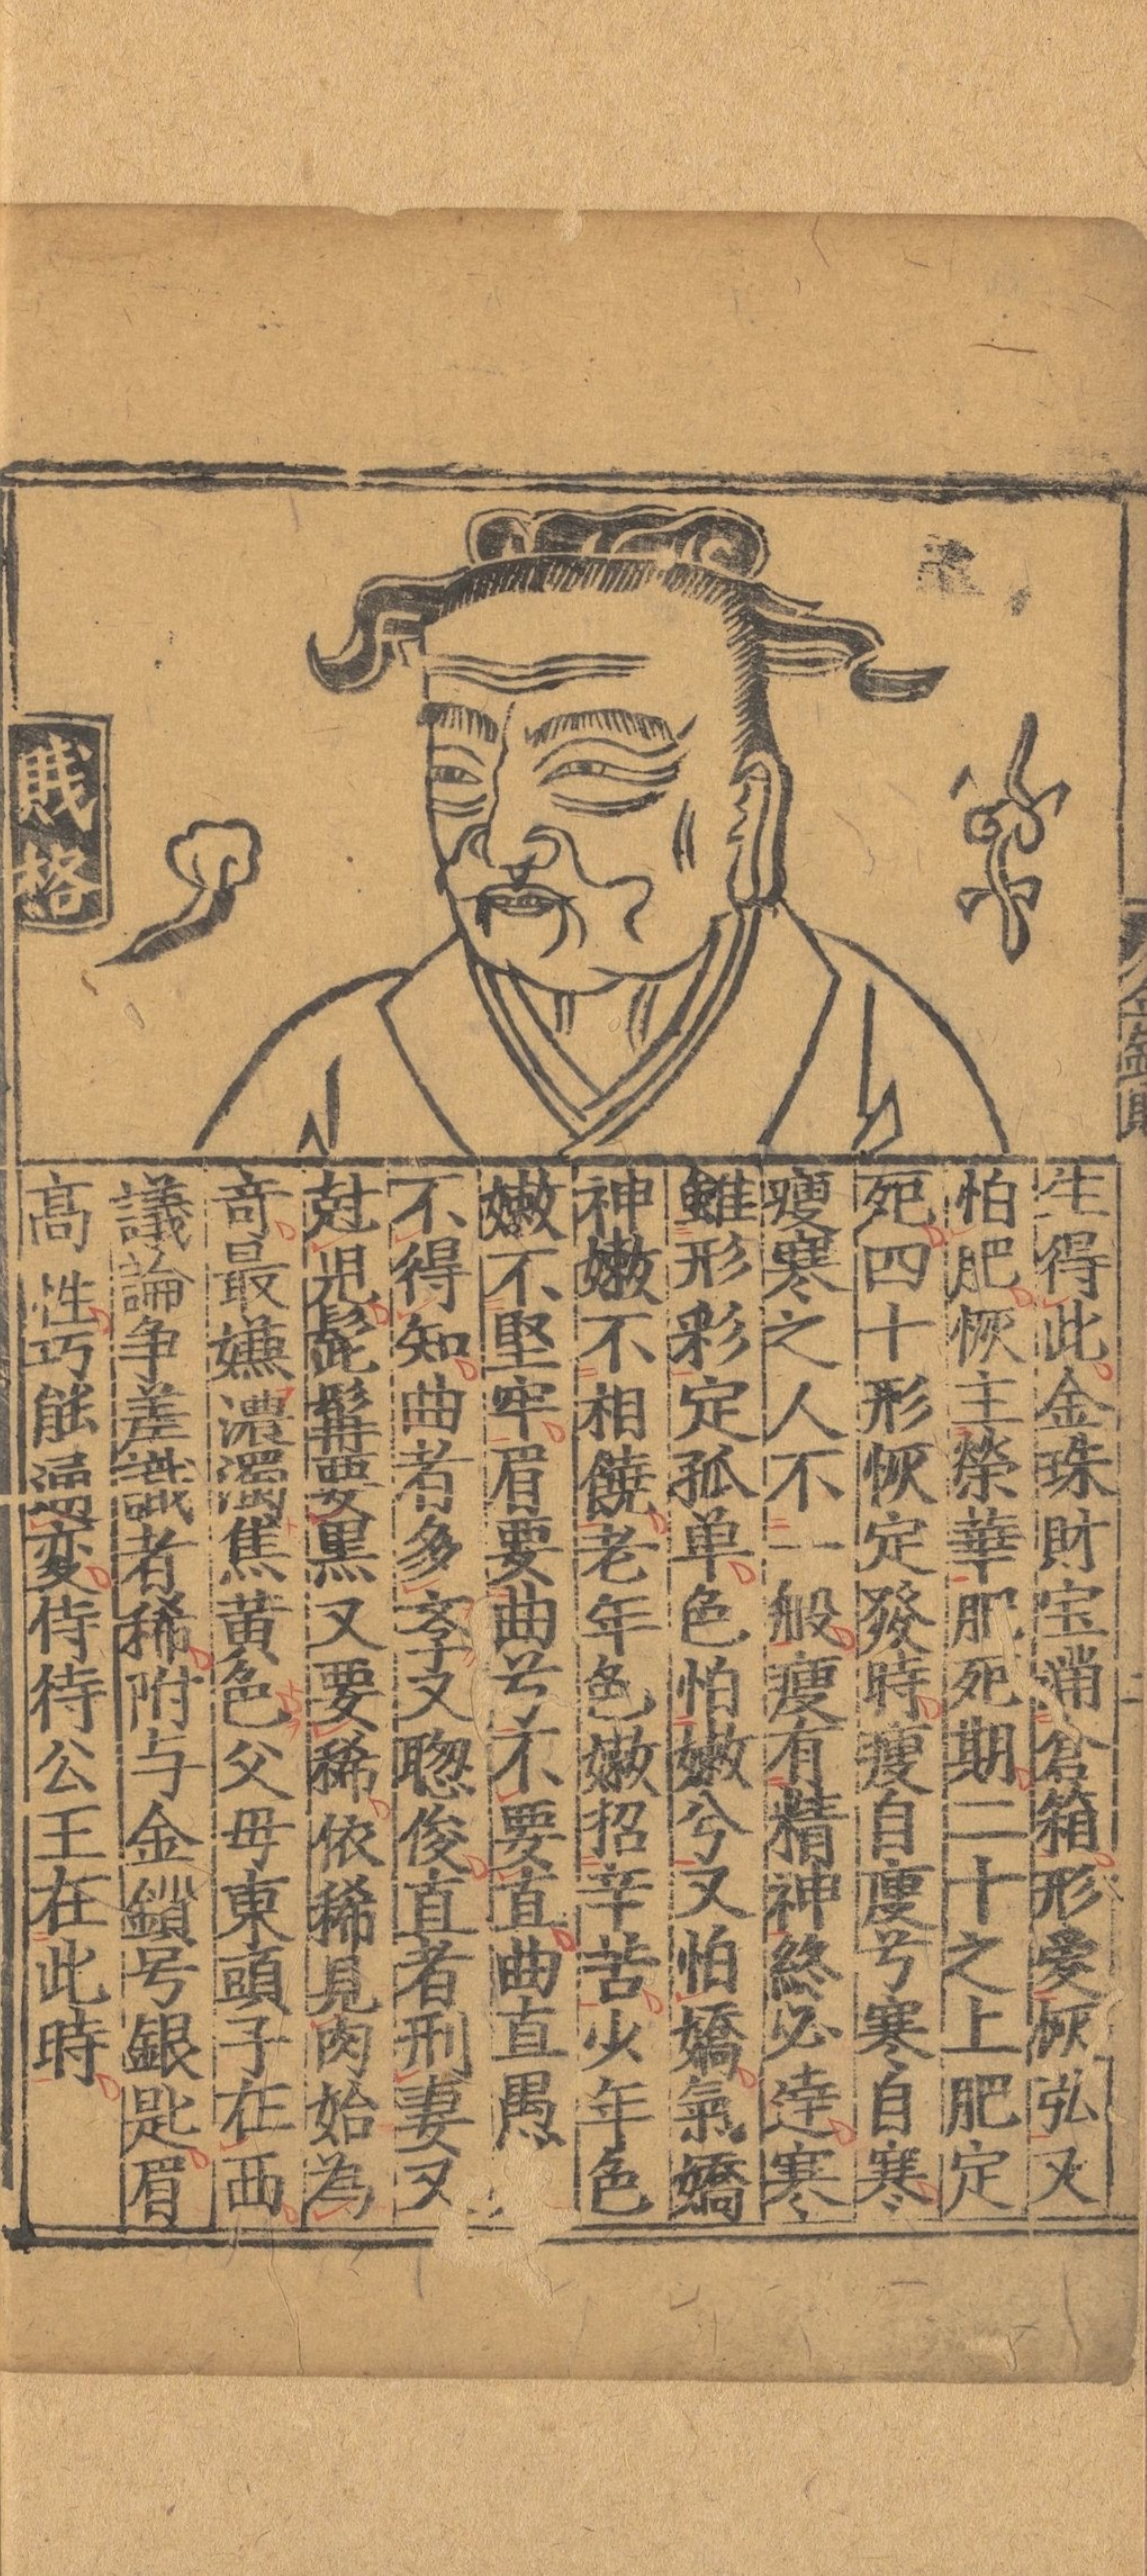 生得此金珠財宝滿倉箱形爱恢弘又
怕肥恢主榮華肥死期二十之上肥定
死四十形恢定發時瘦自瘦兮寒自寒
瘦寒之人不一般瘦有精神終必達寒
雖形彩定孤单色怕嫩兮又怕嬌氣嬌
神嫩不相饒老年色嫩招辛苦少年色
嫩不堅牢眉要曲兮不要直曲直愚
不得知曲者多斈又聦俊直者刑妻又
尅児髭髯要黒又要稀依稀見肉始為
竒最嫌濃濁焦黄色父母東頭子在西
議論争差識者稀附与金鎖号銀匙眉
高性巧能通変侍待公王在此時
賎格